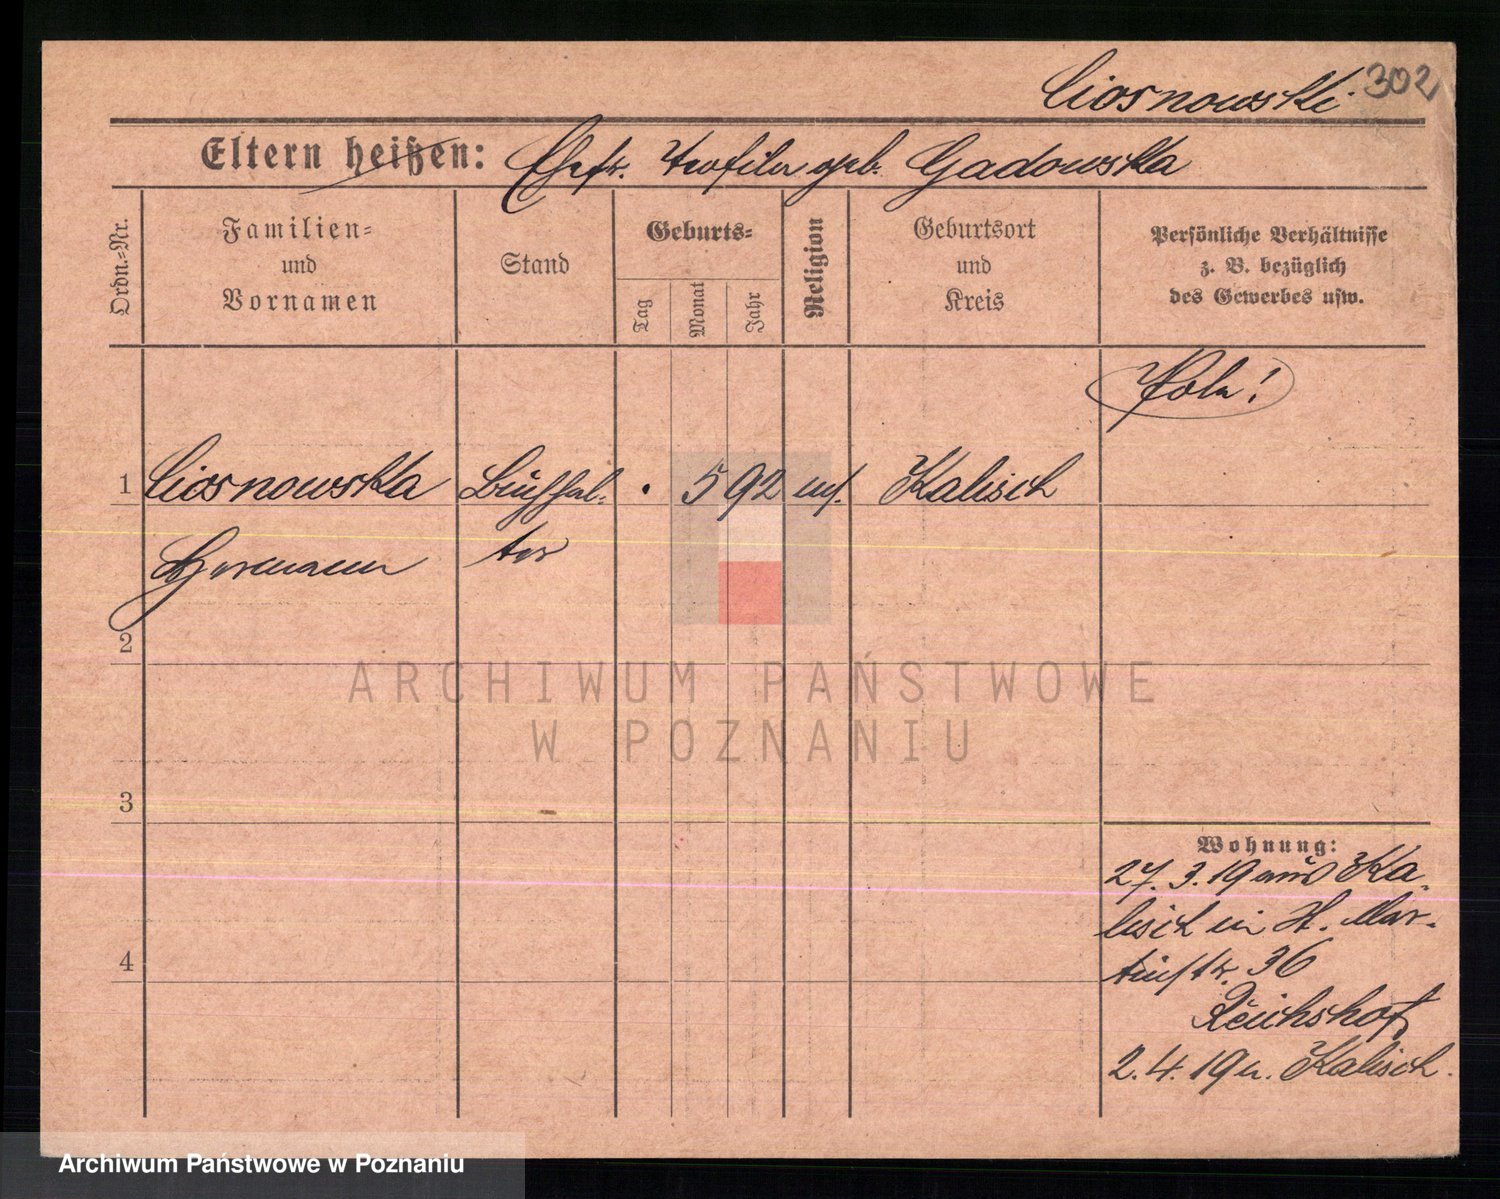 Ciosnowski 302
Eltern heißen: Ehefr. Teofila geb. Gadowska
Ordn.-Nr.
Familien-
und
Vornamen
Stand
Geburts-
Tag
Monat
Jahr
Religion
Geburtsort
und
Kreis
Persönliche Verhältnisse
z. B. bezüglich
des Gewerbes usw.
Pole!
1 Ciosnowska Buchhal- . 5 92 Kalisch
Hermann ter
2
ARCHIWUM PAŃSTWOWE
W POZNANIU
3
Wohnung:
27. 3. 19 aus Ka-
lisch in St. Mar-
4
tinstr. 36
Reichshof
2. 4. 19 n. Kalisch.
Archiwum Państwowe w Poznaniu